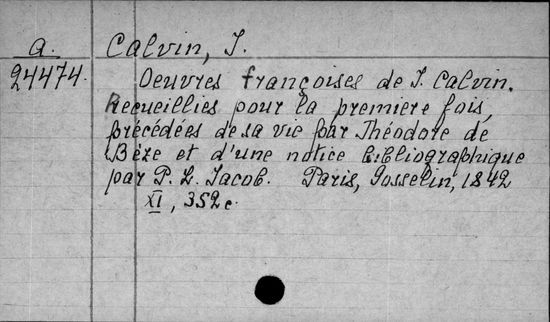 a. Calvin, J.
24474. Oeuvres françoises de J. Calvin.
Recueillies pour la premiere fois,
précédées de sa vie par Théodore de
Bèze et d'une notice bibliographique
par P. L. Jacob. Paris, Gosselin, 1842
XI, 352 c.